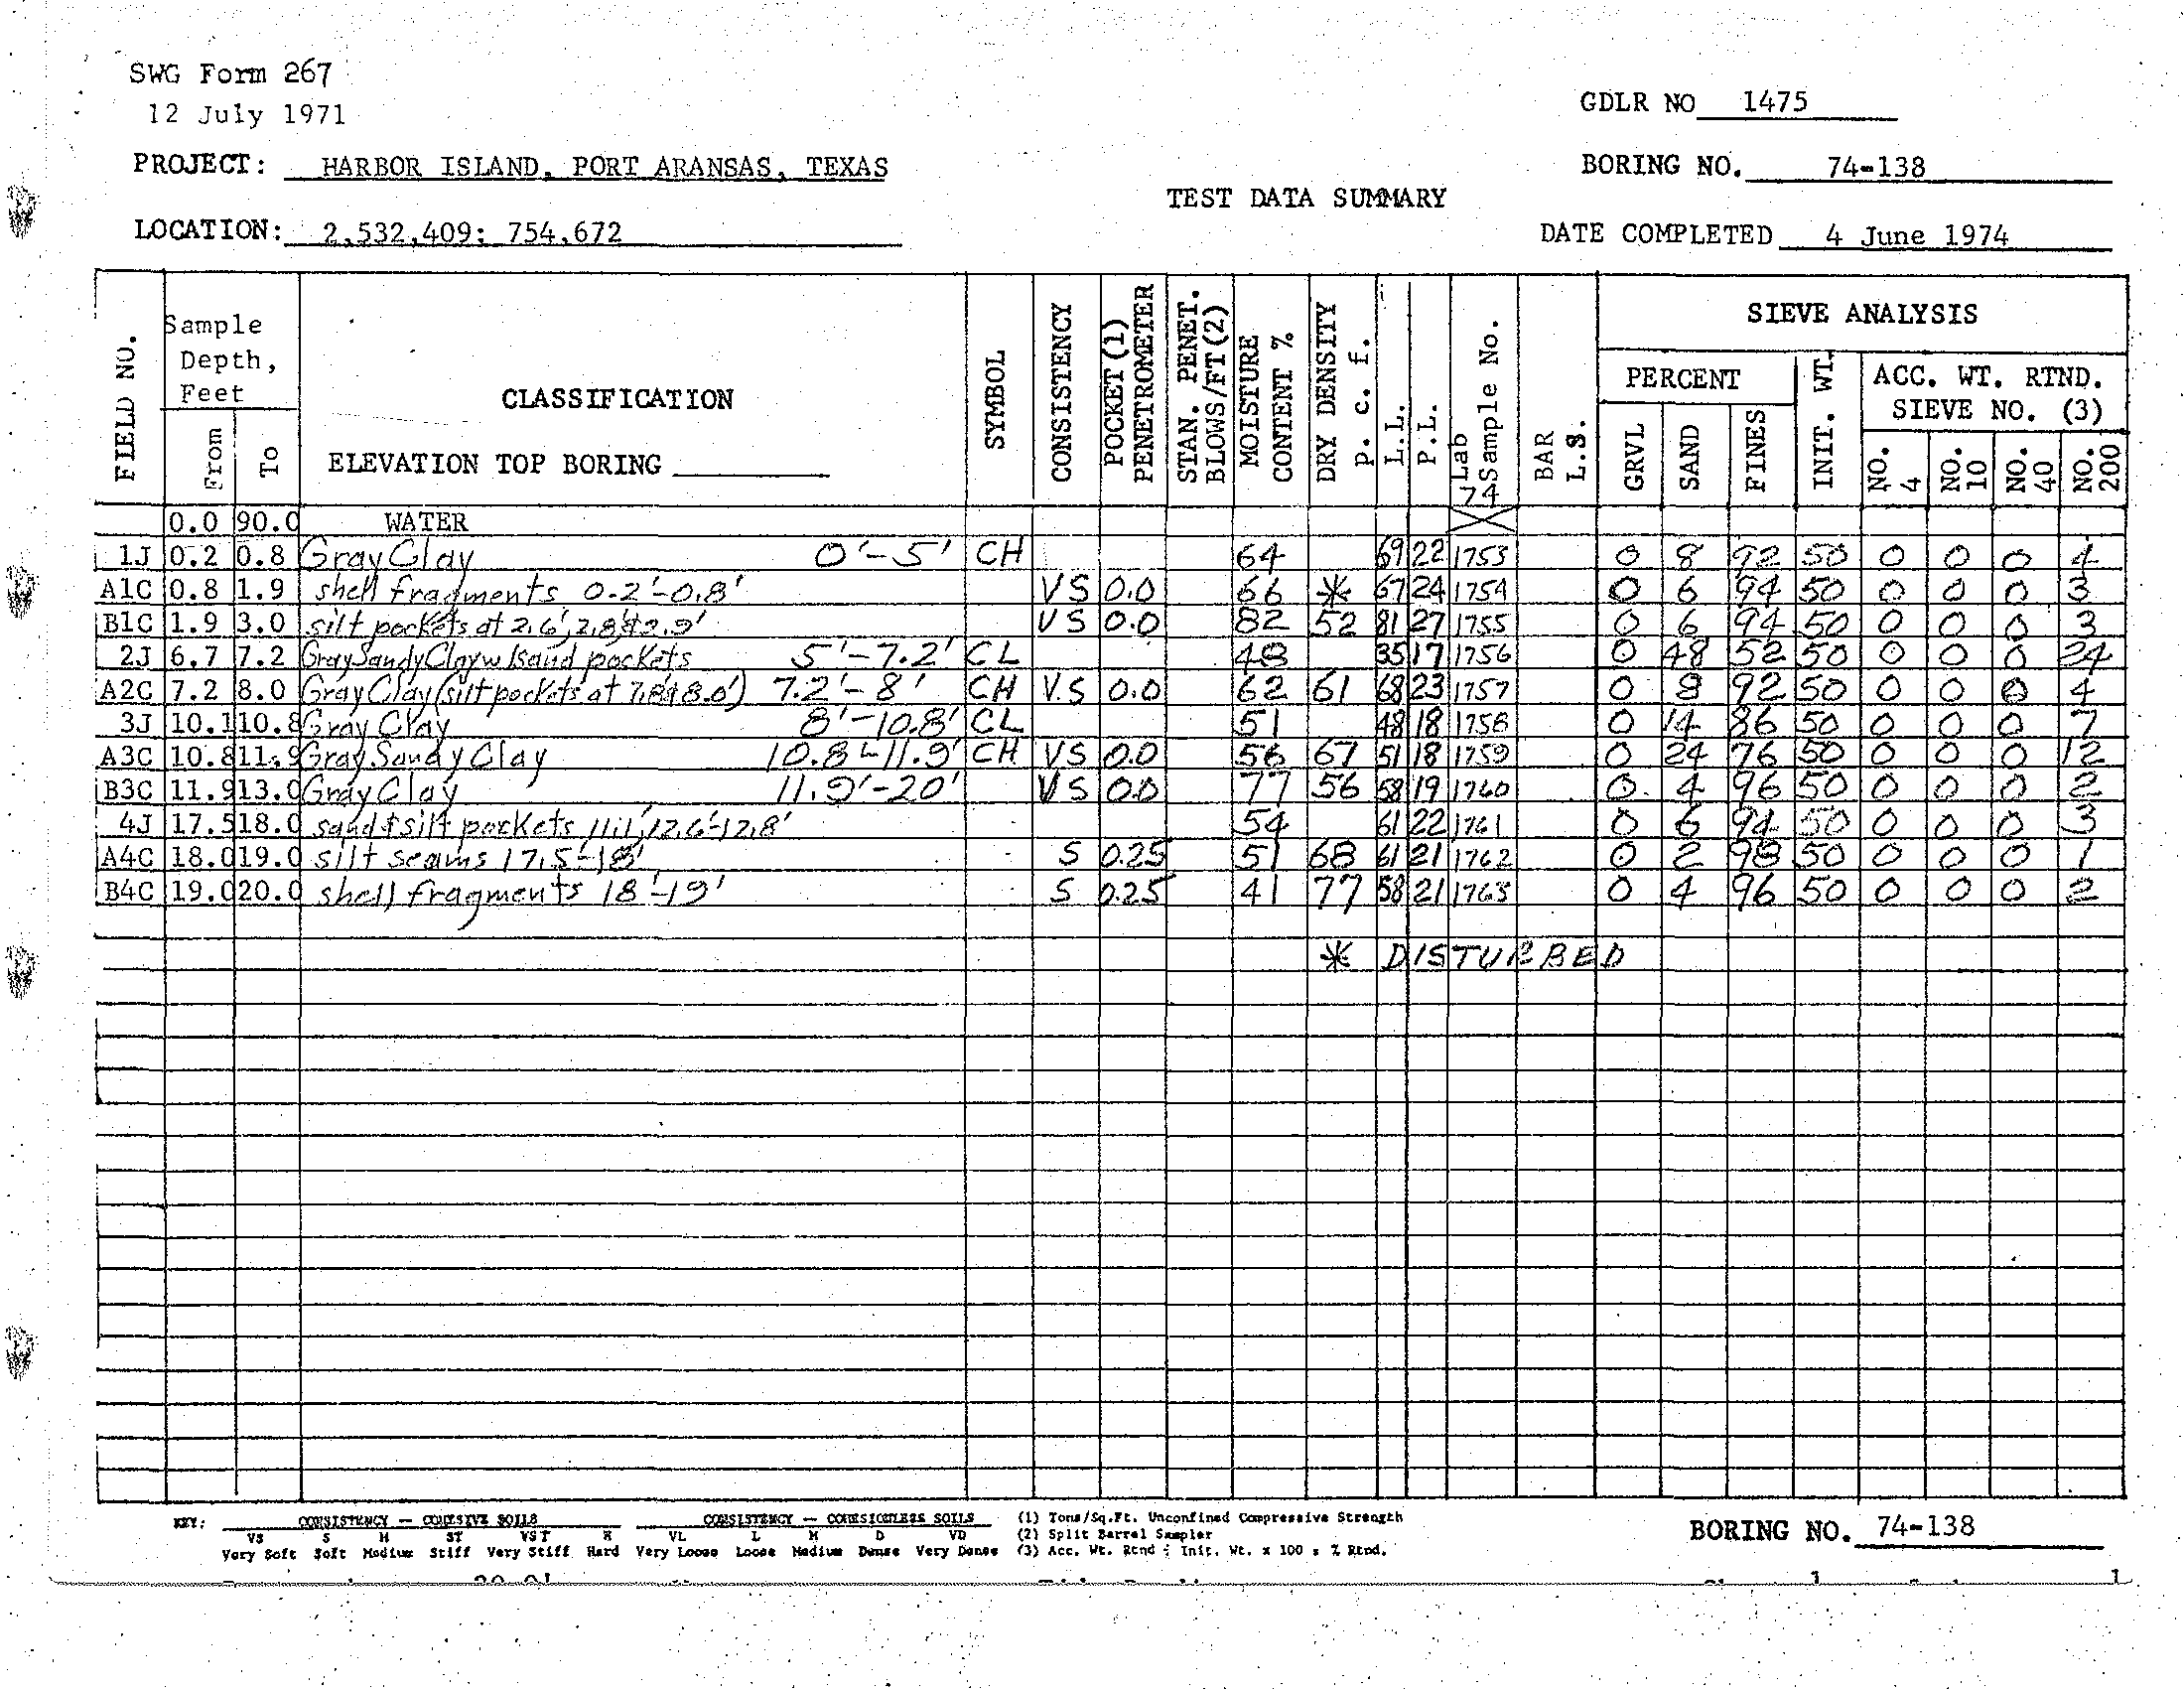 SWG Form 267
12 July 1971
GDLR NO 1475
PROJECT: HARBOR ISLAND, PORT ARANSAS, TEXAS
BORING NO. 74-138
TEST DATA SUMMARY
LOCATION: 2,532,409; 754,672
DATE COMPLETED 4 June 1974
FIELD NO.
Sample Depth, Feet
From
To
CLASSIFICATION
ELEVATION TOP BORING
SYMBOL
CONSISTENCY
POCKET (1) PENETROMETER
STAN. PENET. BLOWS/FT(2)
MOISTURE CONTENT %
DRY DENSITY p. c. f.
L.L.
P.L.
Lab Sample No.
74
BAR L.S.
SIEVE ANALYSIS
PERCENT
GRVL
SAND
FINES
INIT. WT.
ACC. WT. RTND. SIEVE NO. (3)
NO. 4
NO. 10
NO. 40
NO. 200
0.0 90.0 WATER
1J 0.2 0.8 Gray Clay 0'-5' CH 64 69 22 1753 0 8 92 50 0 0 0 4
A1C 0.8 1.9 shell fragments 0.2'-0.8' VS 0.0 66 * 67 24 1754 0 6 94 50 0 0 0 3
B1C 1.9 3.0 silt pockets at 2.6', 2.8' & 2.9' VS 0.0 82 52 81 27 1755 0 6 94 50 0 0 0 3
2J 6.7 7.2 Gray Sandy Clay w/sand pockets 5'-7.2' CL 48 35 17 1756 0 48 52 50 0 0 0 24
A2C 7.2 8.0 Gray Clay (silt pockets at 7.8' & 8.0') 7.2'-8' CH V.S 0.0 62 61 68 23 1757 0 8 92 50 0 0 0 4
3J 10.1 10.8 Gray Clay 8'-10.8' CL 51 48 18 1758 0 14 86 50 0 0 0 7
A3C 10.8 11.9 Gray Sandy Clay 10.8'-11.9' CH VS 0.0 56 67 51 18 1759 0 24 76 50 0 0 0 12
B3C 11.9 13.0 Gray Clay 11.9'-20' VS 0.0 77 56 58 19 1760 0 4 96 50 0 0 0 2
4J 17.5 18.0 sand & silt pockets 11.1', 12.6'-12.8' 54 61 22 1761 0 6 94 50 0 0 0 3
A4C 18.0 19.0 silt seams 17.5-18' S 0.25 51 68 61 21 1762 0 2 98 50 0 0 0 1
B4C 19.0 20.0 shell fragments 18'-19' S 0.25 41 77 58 21 1763 0 4 96 50 0 0 0 2
* DISTURBED
KEY: CONSISTENCY — COHESIVE SOILS
VS S M ST VST H
Very Soft Soft Medium Stiff Very Stiff Hard
CONSISTENCY — COHESIONLESS SOILS
VL L M D VD
Very Loose Loose Medium Dense Very Dense
(1) Tons/Sq.Ft. Unconfined Compressive Strength
(2) Split Barrel Sampler
(3) Acc. Wt. Rtnd ÷ Init. Wt. x 100 = % Rtnd.
BORING NO. 74-138